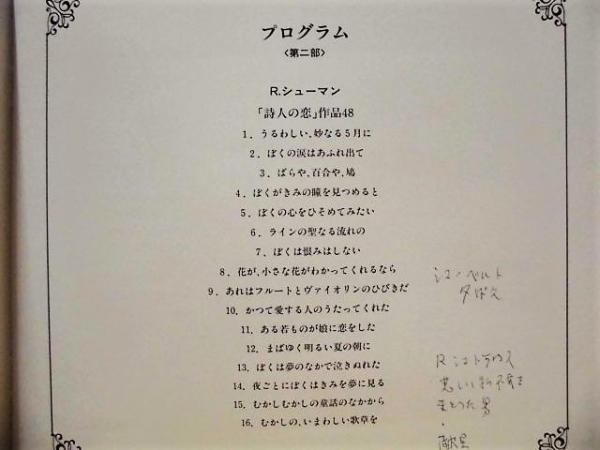 プログラム
〈第二部〉
R.シューマン
「詩人の恋」作品48
1. うるわしい、妙なる5月に
2. ぼくの涙はあふれ出て
3. ばらや、百合や、鳩
4. ぼくがきみの瞳を見つめると
5. ぼくの心をひそめてみたい
6. ラインの聖なる流れの
7. ぼくは恨みはしない
8. 花が、小さな花がわかってくれるなら
9. あれはフルートとヴァイオリンのひびきだ
10. かつて愛する人のうたってくれた
11. ある若ものが娘に恋をした
12. まばゆく明るい夏の朝に
13. ぼくは夢のなかで泣きぬれた
14. 夜ごとにぼくはきみを夢に見る
15. むかしむかしの童話のなかから
16. むかしの、いまわしい歌草を
シューベルト
夕ばえ
R シュトラウス
まとった男
献呈